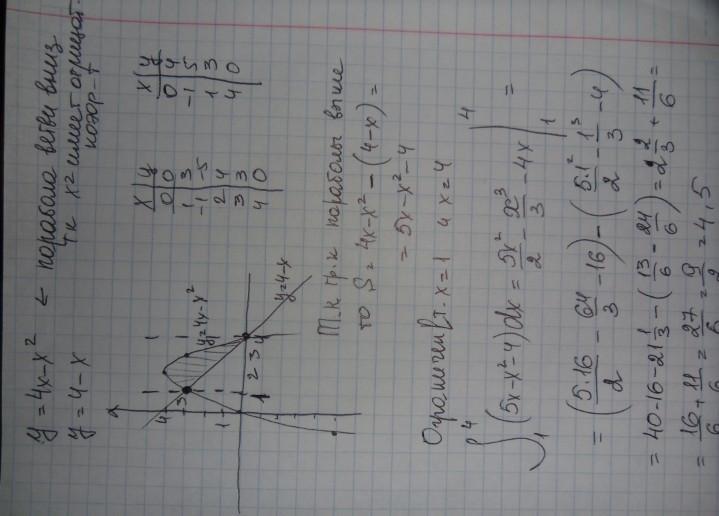 y = 4x-x² ← парабола ветви вниз
т.к x² имеет отрицат.
коэф-т
y = 4-x
x | y
0 | 0
1 | 3
-1 | -5
2 | 4
3 | 3
4 | 0
x | y
0 | 4
-1 | 5
1 | 3
4 | 0
4
3
1
1
2
3
4
y=4x-x²
y=4-x
Т.к гр.к параболы выше
то S = 4x-x² - (4-x) =
= 5x-x²-4
Ограничен т. x=1 и x=4
∫₁⁴ (5x-x²-4)dx = 5x²/2 - x³/3 - 4x |₁⁴ =
= (5·16/2 - 64/3 - 16) - (5·1²/2 - 1³/3 - 4)
= 40-16-21 1/3 - (13/6 - 24/6) = 2 2/3 + 11/6 =
= 16+11/6 = 27/6 = 9/2 = 4,5